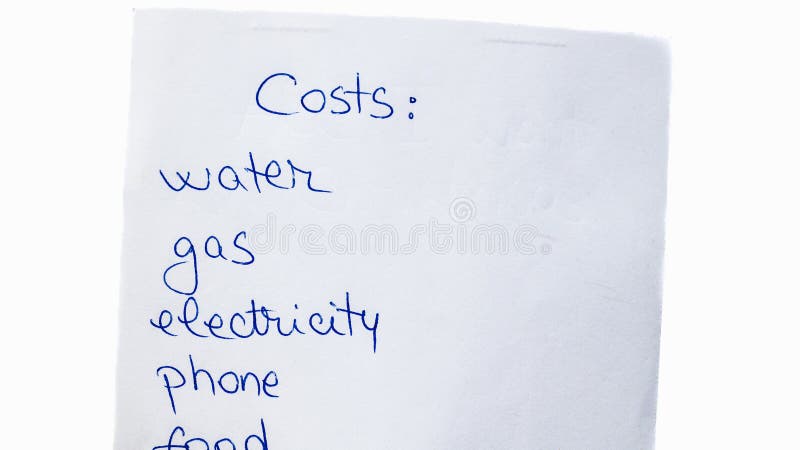 Costs:
water
gas
electricity
phone
food
dreamstime